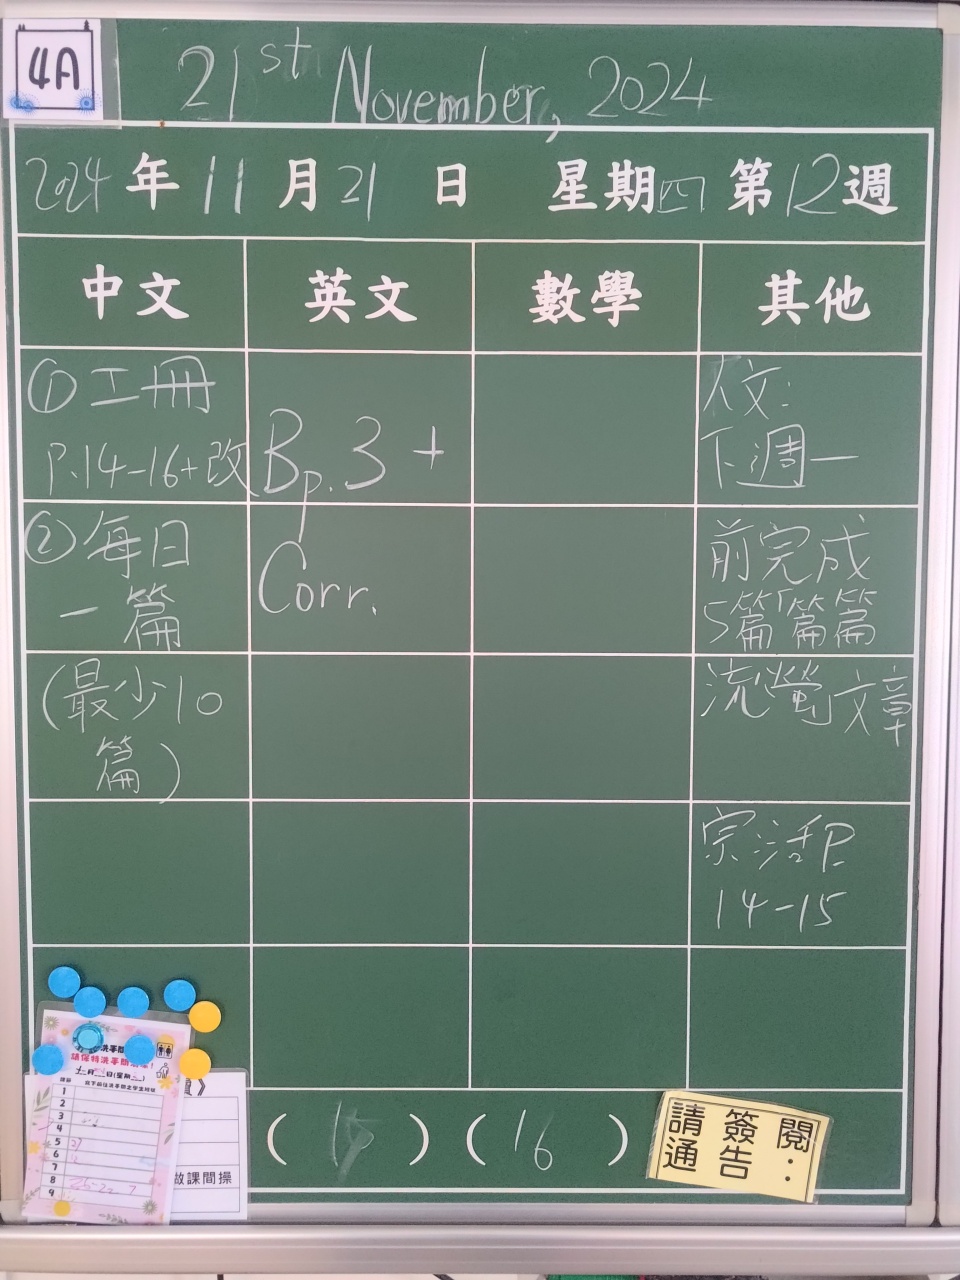 4A
21st November, 2024
2024 年 11 月 21 日 星期四 第 12 週
中文 英文 數學 其他
①工冊
P.14-16+改
②每日
一篇
(最少10
篇)
Bp.3 +
Corr.
人文:
下週一
前完成
5篇篇篇
流螢文章
宗活P.
14-15
請保持洗手間
1
2
3
4
5
6
7
8
9
做課間操
( ) ( 16 )
請簽閱:
通告